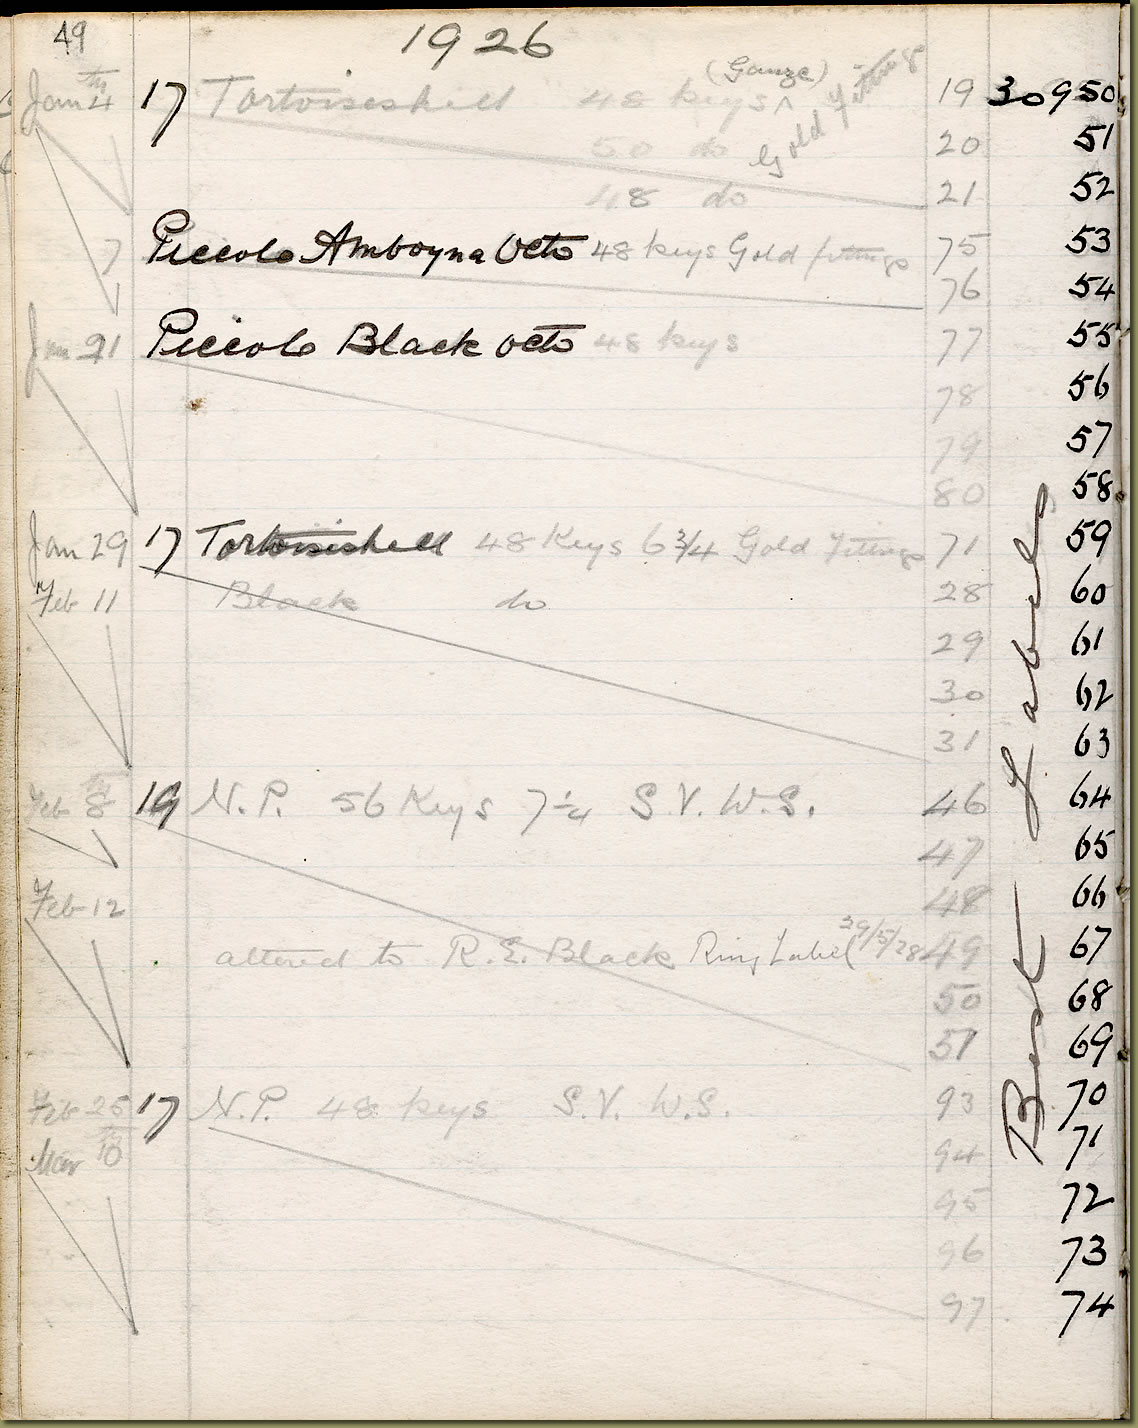 49 1926
(Gauze)
Jan 4th 17 Tortoiseshell 48 keys ^ Gold Fittings 19 30950
50 do 20 51
48 do 21 52
7 Piccolo Amboyna Octo 48 keys Gold fittings 75 53
76 54
Jan 21 Piccolo Black Octo 48 keys 77 55
78 56
79 57
80 58
Jan 29 17 Tortoiseshell 48 Keys 6 3/4 Gold Fittings 71 59
Feb 11 Black do 28 60
29 61
30 62
31 63
Feb 8th 19 N.P. 56 Keys 7 1/4 S.V. W.S. 46 64
47 65
Feb 12 48 66
altered to R.E. Black Ring Label 29/5/28 49 67
50 68
51 69
Feb 25 17 N.P. 48 keys S.V. W.S. 93 70
Mar 10th 94 71
95 72
96 73
97 74
Best Labels